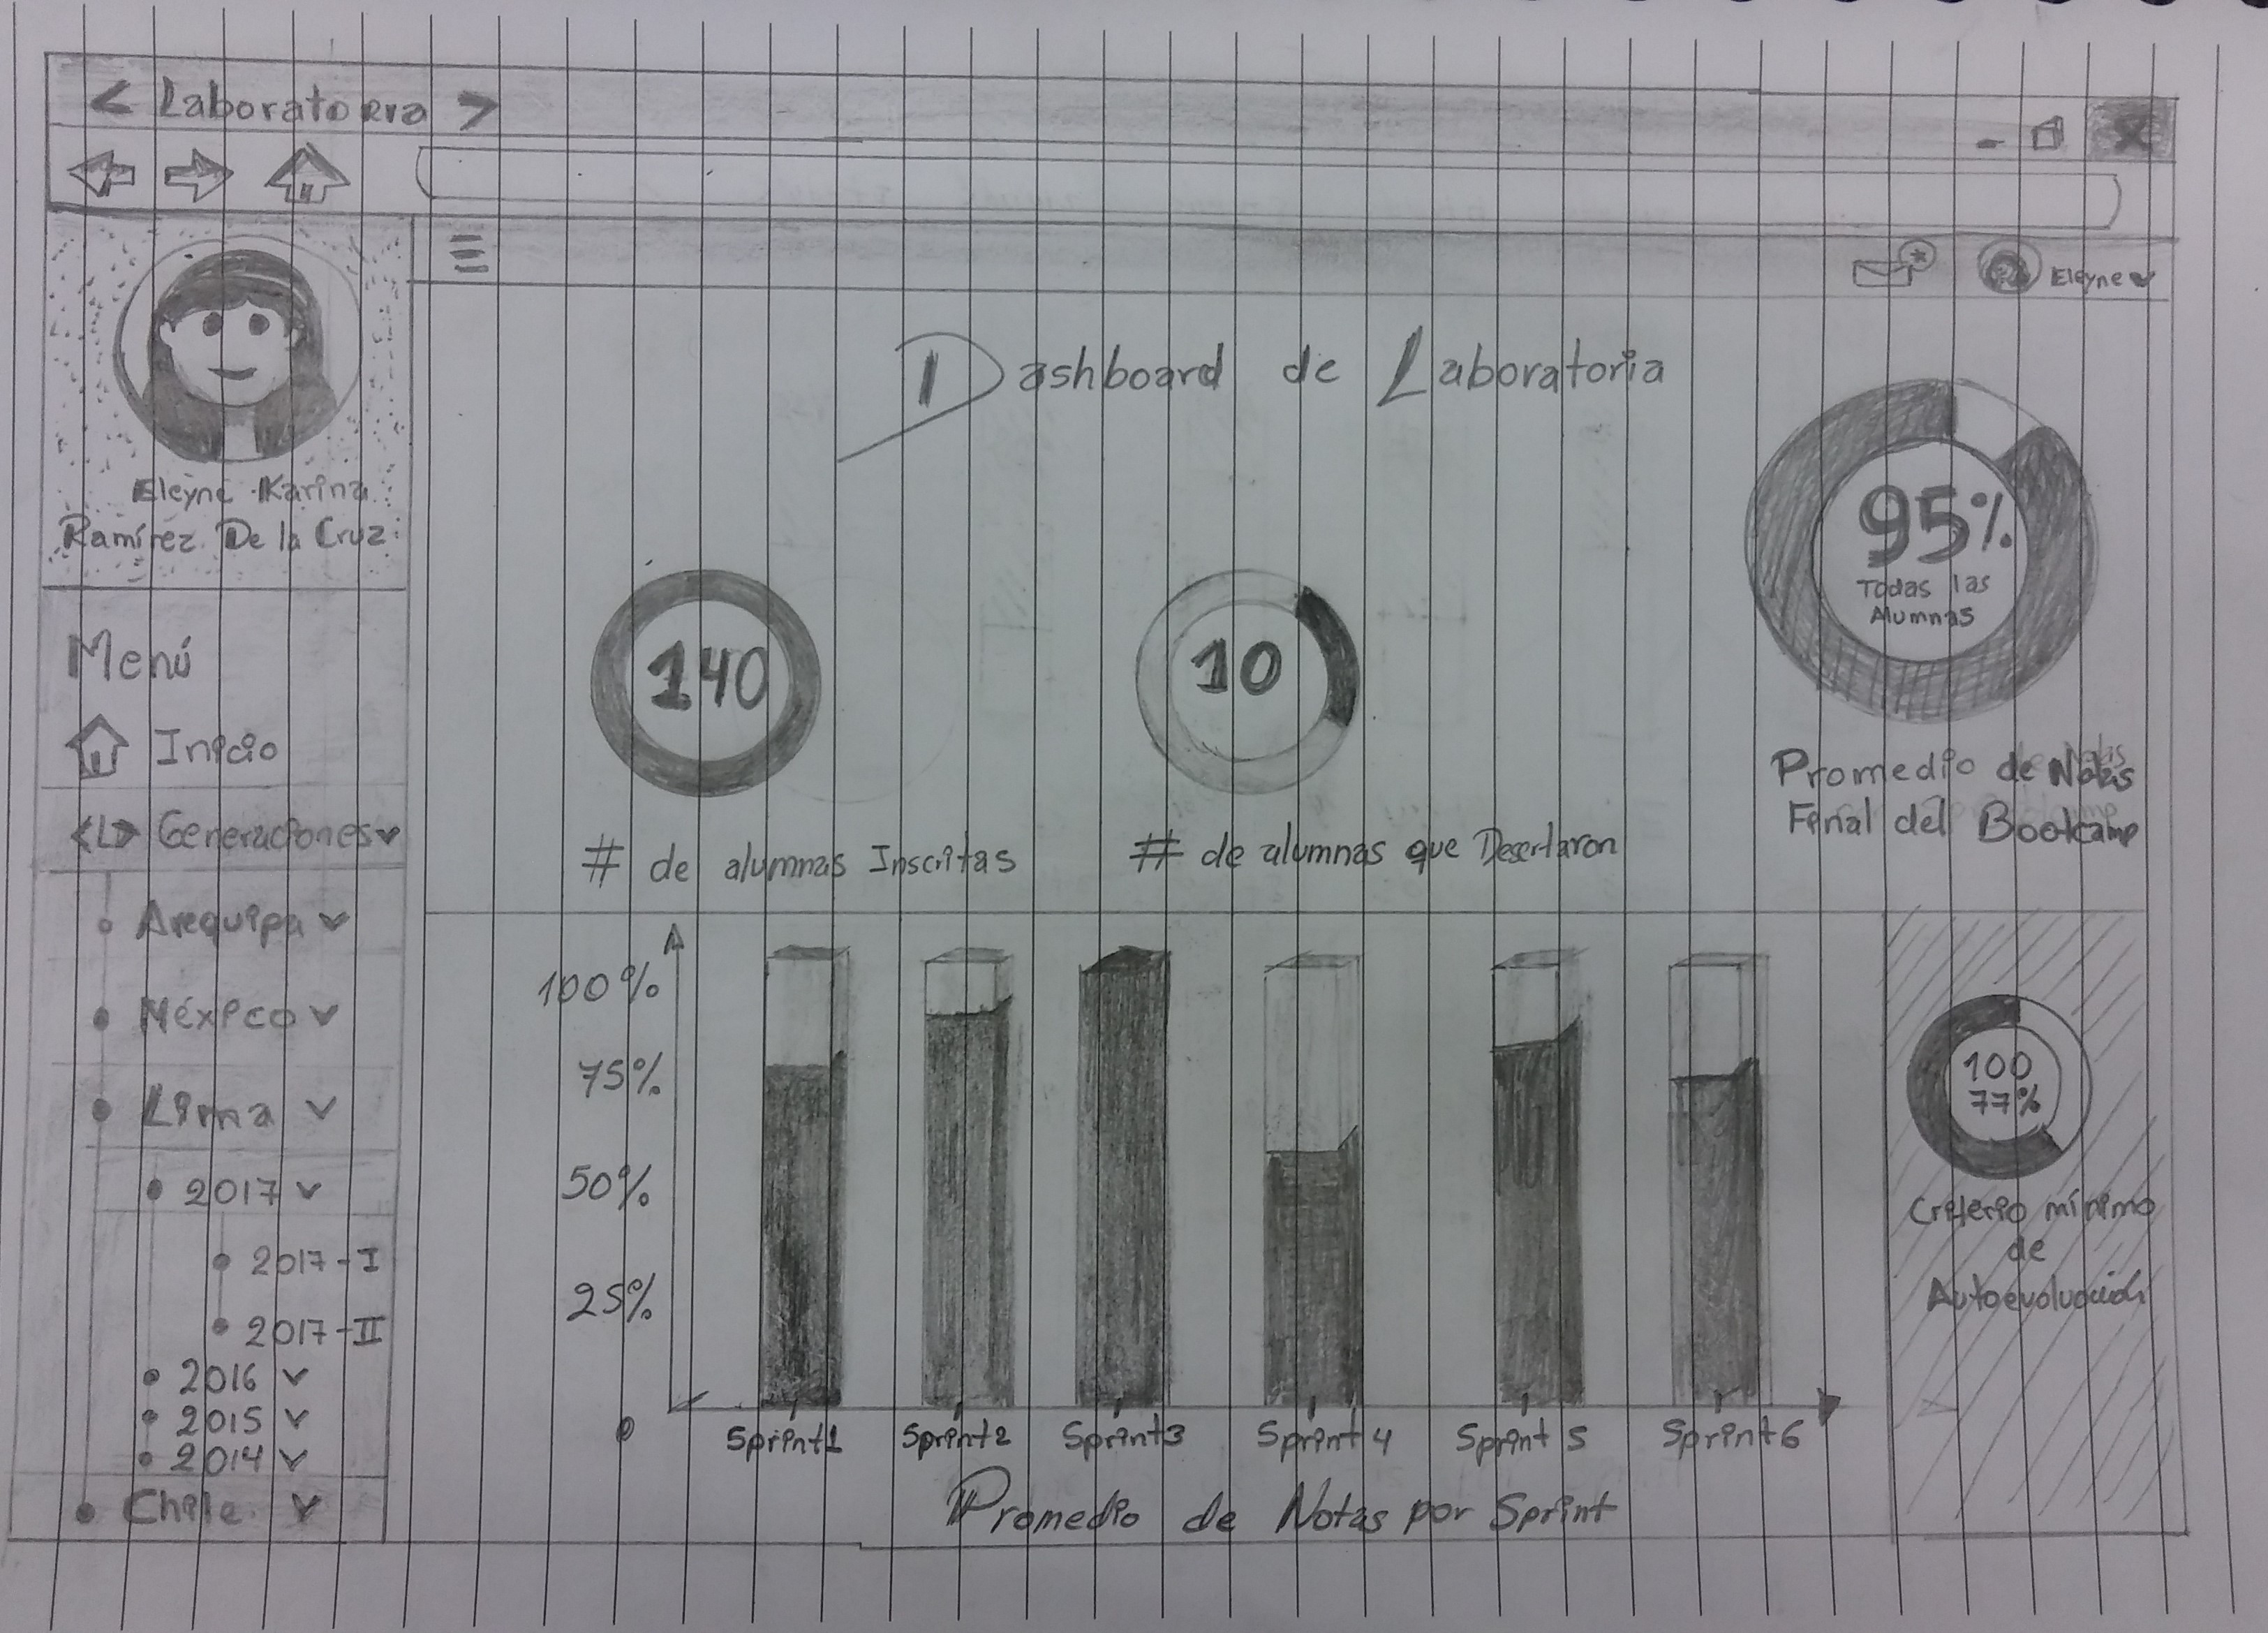 < Laboratoria >
Eleyne
Eleyne Karina
Ramírez De la Cruz
Menú
Inicio
<L> Generaciones
Arequipa
México
Lima
2017
2017-I
2017-II
2016
2015
2014
Chile
Dashboard de Laboratoria
140
# de alumnas Inscritas
10
# de alumnas que Desertaron
95%
Todas las
Alumnas
Promedio de Notas
Final del Bootcamp
100%
75%
50%
25%
0
Sprint1 Sprint2 Sprint3 Sprint4 Sprint5 Sprint6
Promedio de Notas por Sprint
100
77%
Criterio mínimo
de